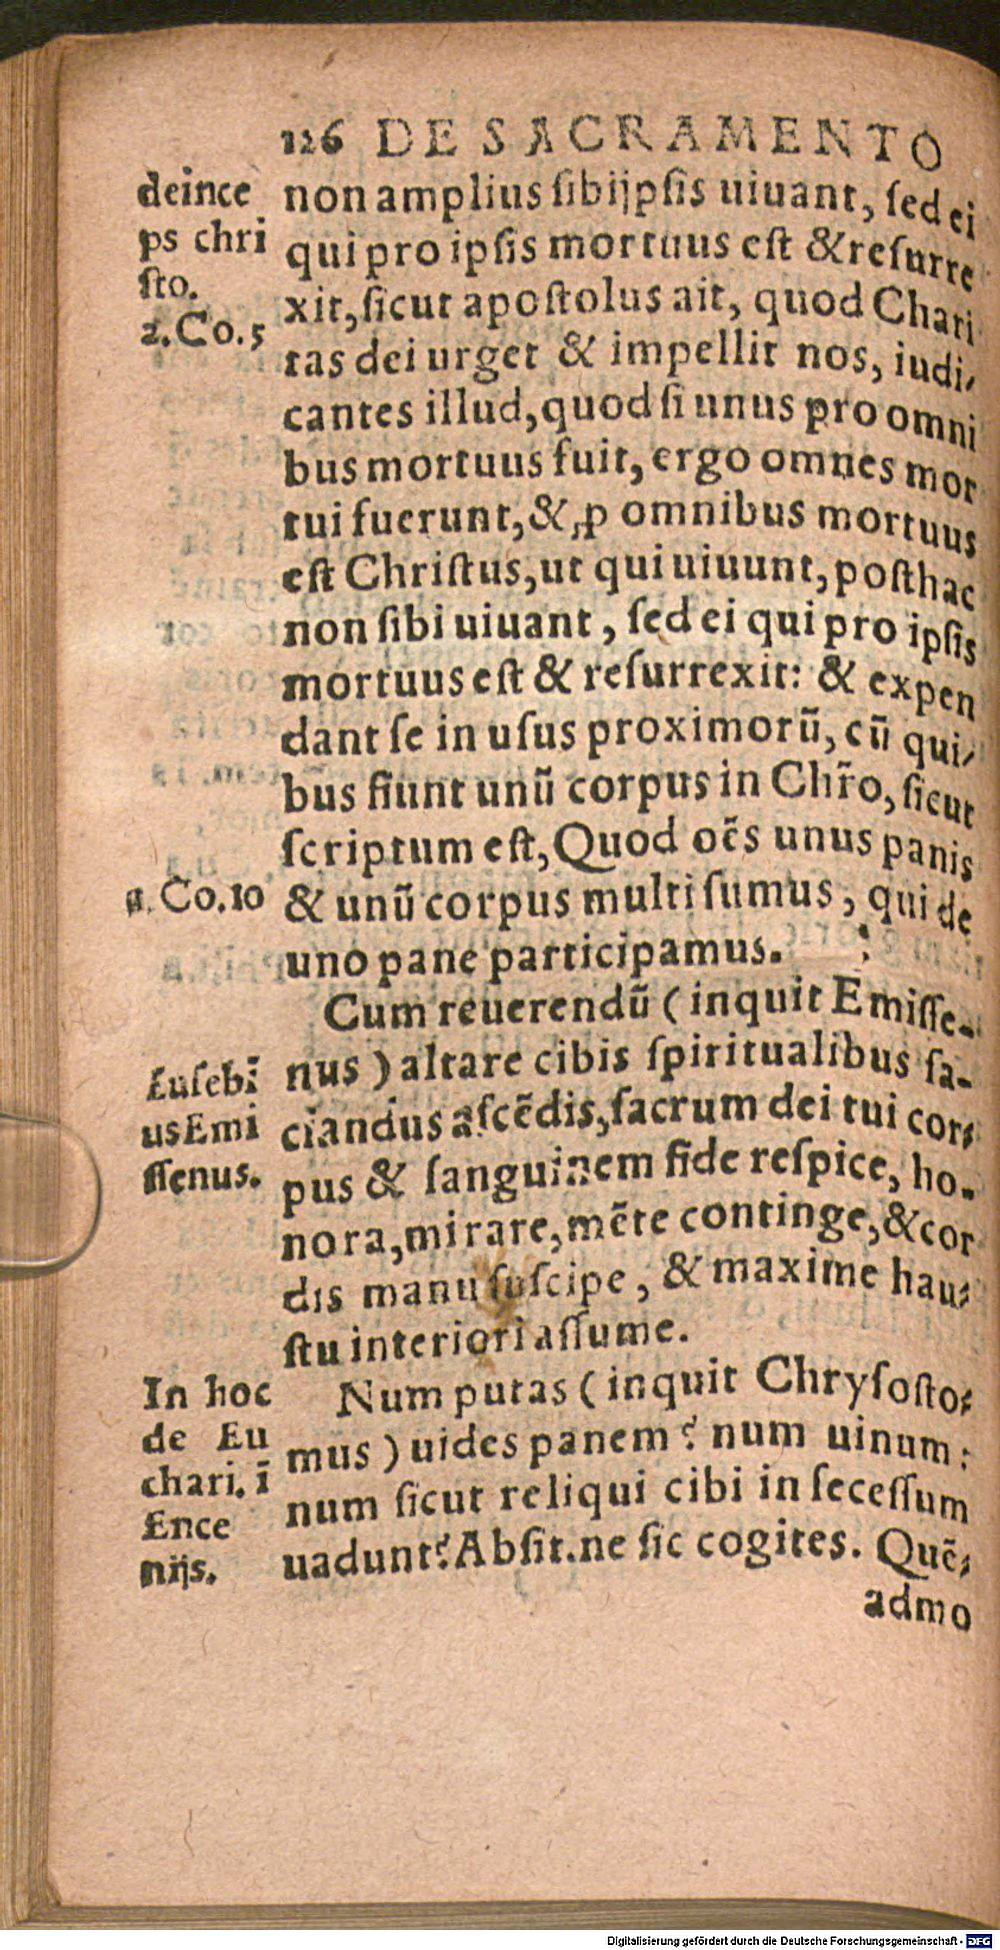 126 DE SACRAMENTO
deince
ps chri
ſto.
2.Co.5
non amplius ſibijpſis uiuant, ſed ei
qui pro ipſis mortuus eſt & reſurre
xit, ſicut apoſtolus ait, quod Chari
tas dei urget & impellit nos, iudi⸗
cantes illud, quod ſi unus pro omni
bus mortuus fuit, ergo omnes mor
tui fuerunt, & ꝓ omnibus mortuus
eſt Chriſtus, ut qui uiuunt, poſthac
non ſibi uiuant, ſed ei qui pro ipſis
mortuus eſt & reſurrexit: & expen
dant ſe in uſus proximorũ, cũ qui⸗
bus fiunt unũ corpus in Chr̃o, ſicut
ſcriptum eſt, Quod oẽs unus panis
1.Co.10
& unũ corpus multi ſumus, qui de
uno pane participamus.
Cum reuerendũ (inquit Emiſſe-
Euſebĩ
usEmi
ſſenus.
nus) altare cibis ſpiritualibus ſa-
ciandus aſcẽdis, ſacrum dei tui cor⸗
pus & ſanguinem fide reſpice, ho-
nora, mirare, mẽte continge, & cor
dis manu ſuſcipe, & maxime hau⸗
ſtu interiori aſſume.
In hoc
de Eu
chari. ĩ
Ence
nijs.
Num putas (inquit Chryſoſto⸗
mus) uides panem? num uinum?
num ſicut reliqui cibi in ſeceſſum
uadunt? Abſit. ne ſic cogites. Quẽ⸗
admo
Digitalisierung gefördert durch die Deutsche Forschungsgemeinschaft - DFG